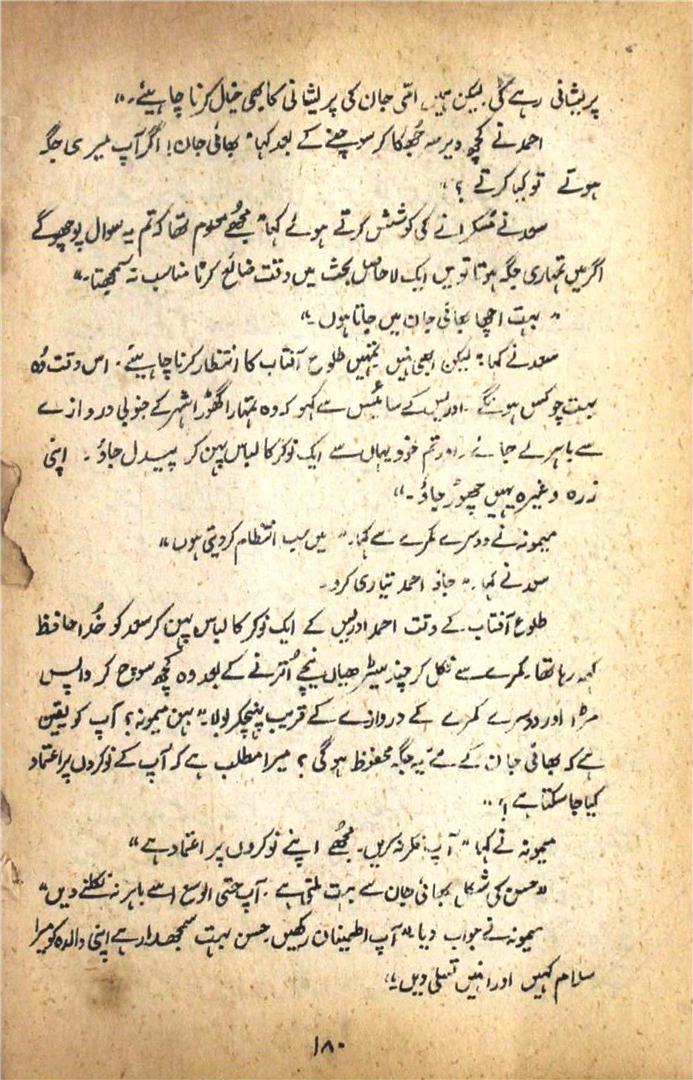 پریشانی رہے گی لیکن ہمیں امّی جان کی پریشانی کا بھی خیال کرنا چاہیئے۔"
احمد نے کچھ دیر سر جُھکا کر سوچنے کے بعد کہا "بھائی جان! اگر آپ میری جگہ
ہوتے تو کیا کرتے ؟"
سعد نے مُسکرانے کی کوشش کرتے ہوئے کہا "مجھے معلوم تھا کہ تم یہ سوال پوچھو گے
اگر میں تمہاری جگہ ہوتا تو میں ایک لاحاصل بحث میں وقت ضائع کرنا مناسب نہ سمجھتا۔"
"بہت اچھا بھائی جان میں جاتا ہوں۔"
سعد نے کہا "لیکن ابھی نہیں تمہیں طلوع آفتاب کا انتظار کرنا چاہیئے۔ اس وقت وُہ
بہت چوکس ہونگے۔ ادریس کے سائیس سے کہو کہ وہ تمہارا گھوڑا شہر کے جنوبی دروازے
سے باہر لے جائے۔ اور تم خود یہاں سے ایک نوکر کا لباس پہن کر پیدل جاؤ۔ اپنی
زرہ وغیرہ یہیں چھوڑ جاؤ۔"
میمونہ نے دوسرے کمرے سے کہا۔ "میں سب انتظام کر دیتی ہوں"
سعد نے کہا۔ "جاؤ احمد تیاری کرو۔
طلوع آفتاب کے وقت احمد ادریس کے ایک نوکر کا لباس پہن کر سعد کو خُدا حافظ
کہہ رہا تھا۔ کمرے سے نکل کر چند سیڑھیاں نیچے اُترنے کے بعد وہ کچھ سوچ کر واپس
مڑا اور دوسرے کمرے کے دروازے کے قریب پہنچکر بولا "بہن میمونہ؟ آپ کو یقین
ہے کہ بھائی جان کے لئے یہ جگہ محفوظ ہوگی؟ میرا مطلب ہے کہ آپ کے نوکروں پر اعتماد
کیا جا سکتا ہے؟"
میمونہ نے کہا "آپ فکر نہ کریں۔ مجھے اپنے نوکروں پر اعتماد ہے"
"حسن کی شکل بھائی جان سے بہت ملتی ہے۔ آپ حتی الوسع اسے باہر نہ نکلنے دیں"
میمونہ نے جواب دیا "آپ اطمینان رکھیں۔ حسن بہت سمجھدار ہے اپنی والدہ کو میرا
سلام کہیں اور انہیں تسلی دیں۔"
۱۸۰